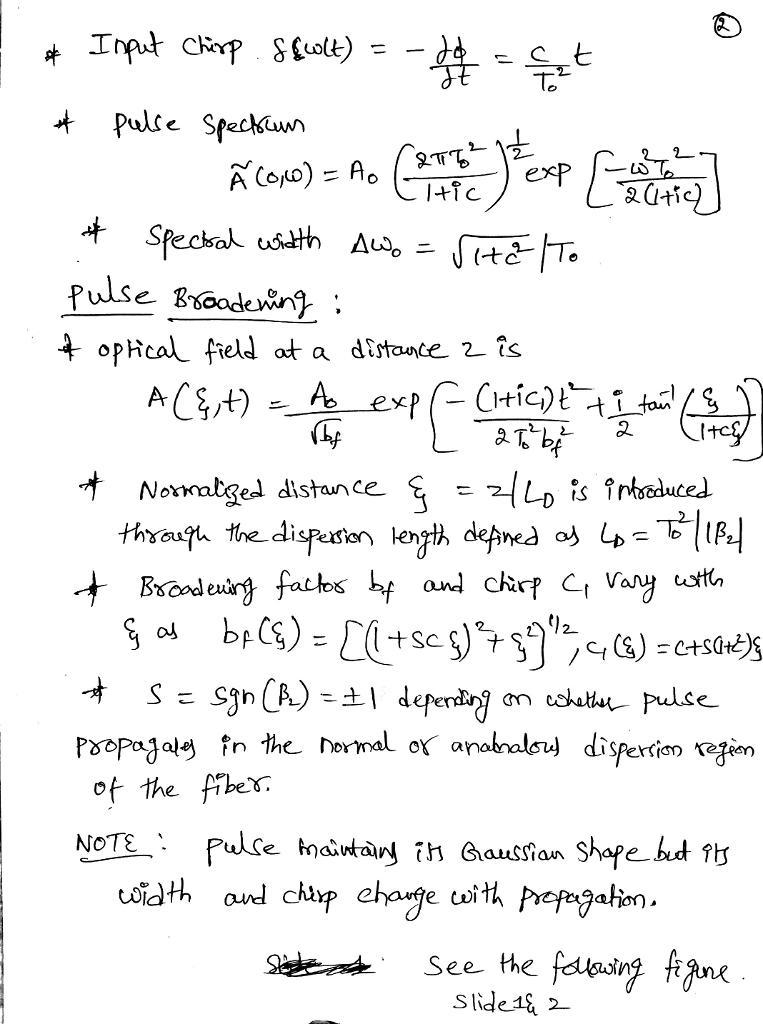 ②
* Input chirp δω(t) = - ∂φ/∂t = C/T₀² t
* pulse spectrum
Ã(0,ω) = A₀ (2πT₀²/1+ic)^½ exp [-ω²T₀²/2(1+ic)]
* Spectral width Δω₀ = √1+c² / T₀
Pulse Broadening :
* optical field at a distance z is
A(ξ,t) = A₀/√bf exp [- (1+iC₁)t²/2T₀²bf² + i/2 tan⁻¹ (ξ/1+cξ)]
* Normalized distance ξ = z/L_D is introduced
through the dispersion length defined as L_D = T₀²/|β₂|
* Broadening factor bf and chirp C₁ vary with
ξ as bf(ξ) = [(1+scξ)²+ξ²]^1/2, c₁(ξ) = c+s(1+c²)ξ
* S = sgn(β₂) = ±1 depending on whether pulse
propagates in the normal or anabnalous dispersion region
of the fiber.
NOTE : pulse maintains its Gaussian shape but its
width and chirp change with propagation.
See the following figure.
slide 1& 2